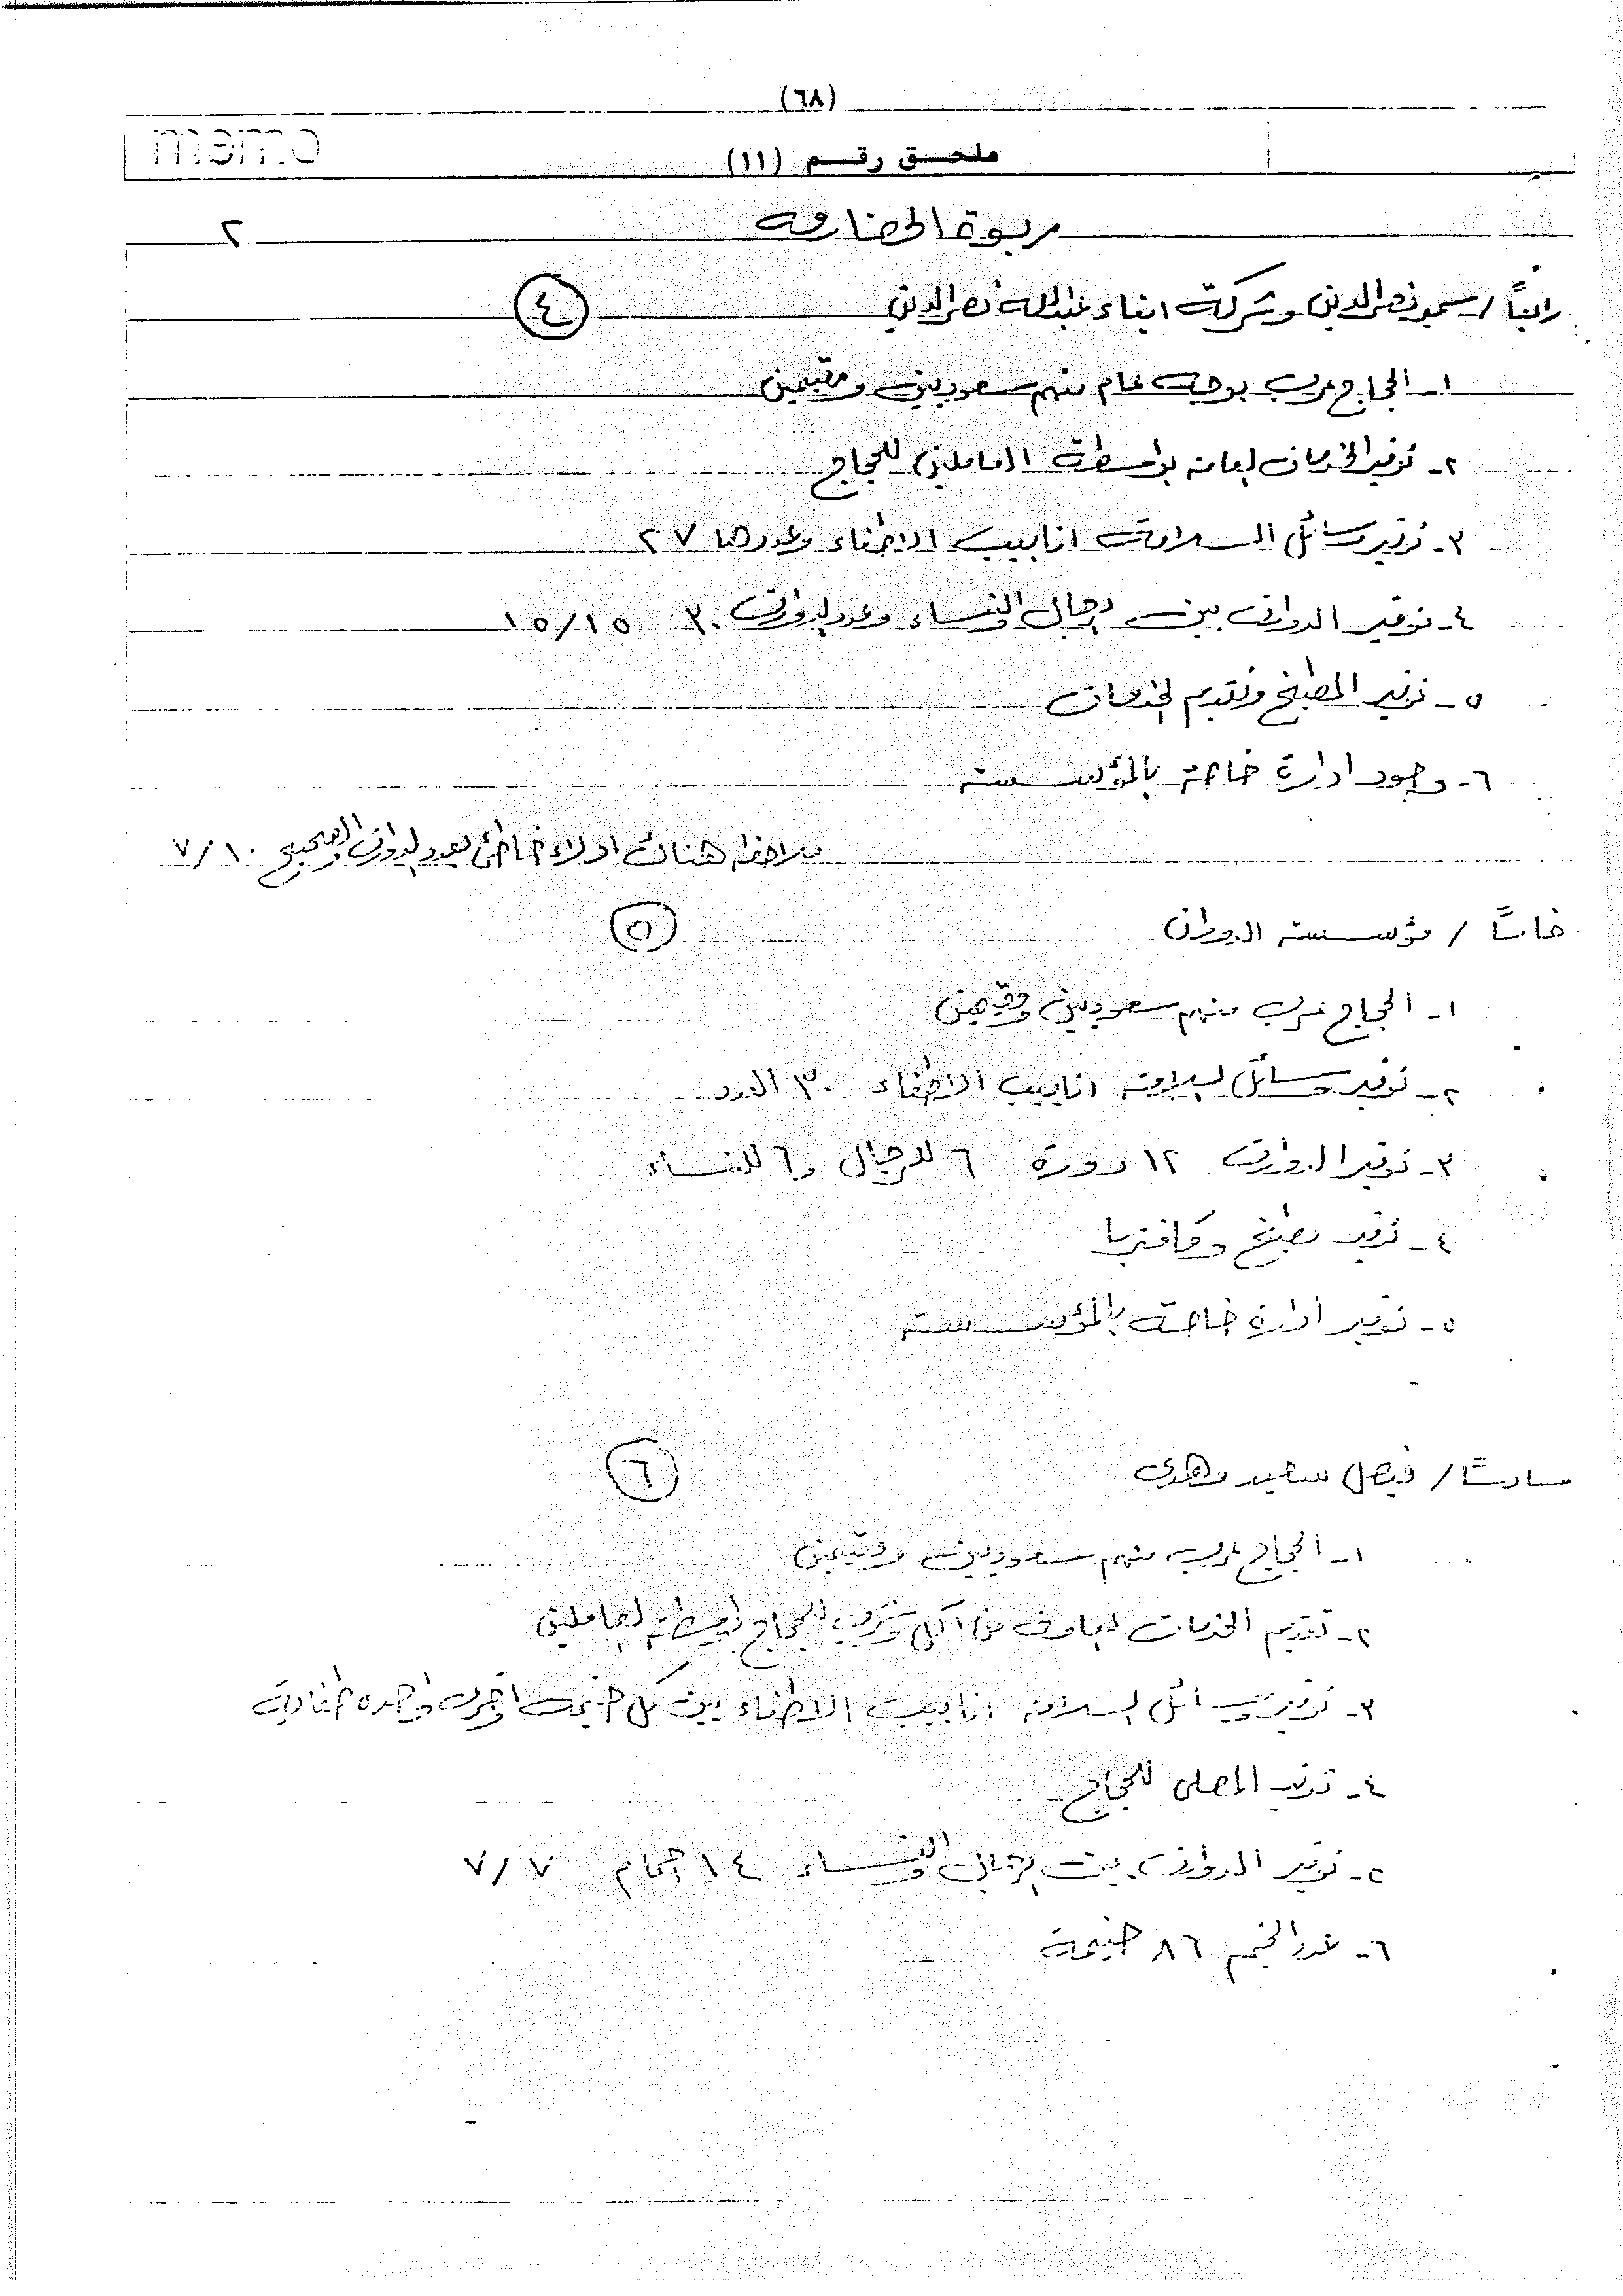 (٦٨)
memo
ملحق رقم (١١)
ربوة الحضارمه ٢
رابعاً / سمير نصر الدين وشركة ابناء عبدالله نصر الدين ٤
١- الحجاج عرب بوجه عام منهم سعوديين ومقيمين
٢- توفير الخدمات العامه بواسطة العاملين للحجاج
٣- توفير وسائل السلامة انابيب الاطفاء وعددها ٢٧
٤- توفير الدورات بين الرجال والنساء وعدد الدورات ٣٠ ١٥/١٥
٥- توفير المطبخ وتقديم الخدمات
٦- وجود ادارة خاصة بالمؤسسة
ملاحظه هناك ادلاء خاطئ بعدد الدورات والصحيح ٧/١٠
خامساً / مؤسسة الروان ٥
١- الحجاج عرب منهم سعوديين ومقيمين
٢- توفير وسائل السلامه انابيب الاطفاء ٣٠ العدد
٣- توفير الدورات ١٢ دورة ٦ للرجال و٦ للنساء
٤- توفير مطبخ وكافتريا
٥- توفير ادارة خاصة بالمؤسسة
سادساً / فيصل سعيد وهدي ٦
١- الحجاج عرب منهم سعوديين ومقيمين
٢- تقديم الخدمات من اكل وشرب للحجاج بواسطة العاملين
٣- توفير وسائل السلامه انابيب الاطفاء بين كل خيمة واخرى واحده طفاية
٤- توفير المصلى للحجاج
٥- توفير الدورات بين الرجال والنساء ١٤ حمام ٧/٧
٦- عدد الخيم ٨٦ خيمة